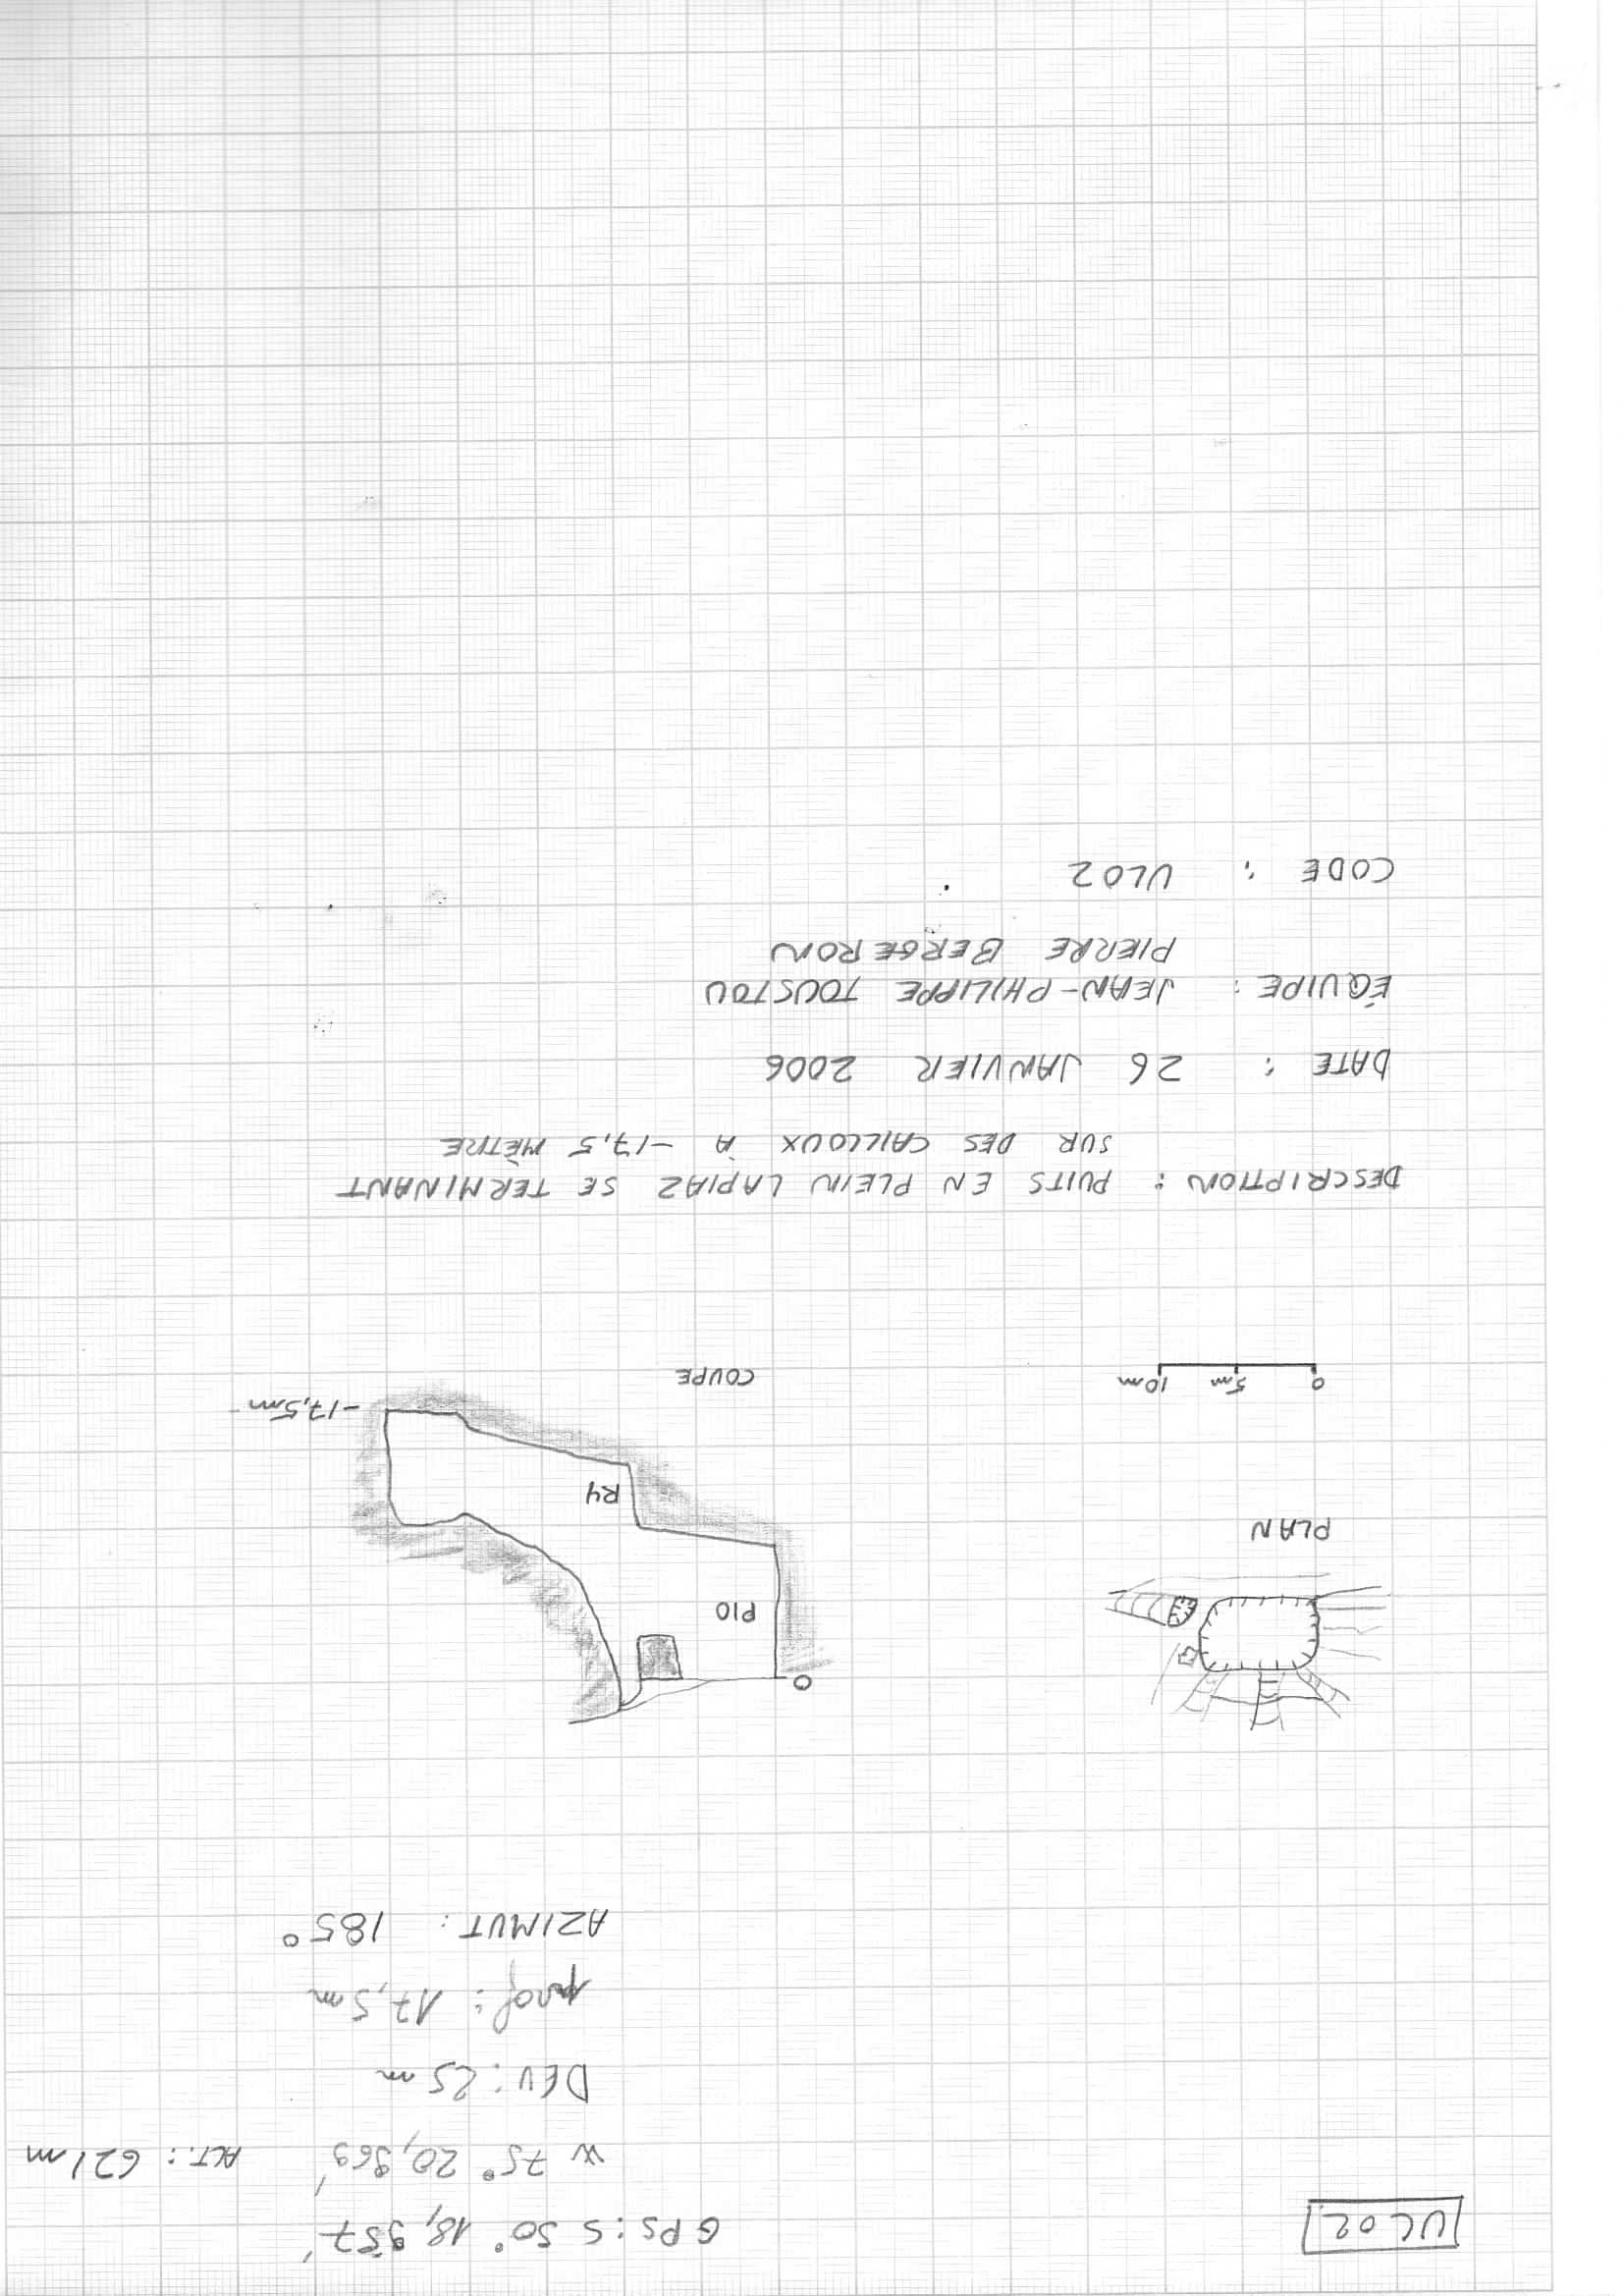 UL02
GPS: S 50° 18,957'
W 75° 20,969'
ALT.: 621m
DEV: 25m
prof: 17,5m
AZIMUT: 185°
0
P10
R4
-17,5m
COUPE
PLAN
0 5m 10m
DESCRIPTION: PUITS EN PLEIN LAPIAZ SE TERMINANT
SUR DES CAILLOUX À -17,5 MÈTRE
DATE : 26 JANVIER 2006
ÉQUIPE : JEAN-PHILIPPE TOUSTOU
PIERRE BERGERON
CODE : UL02